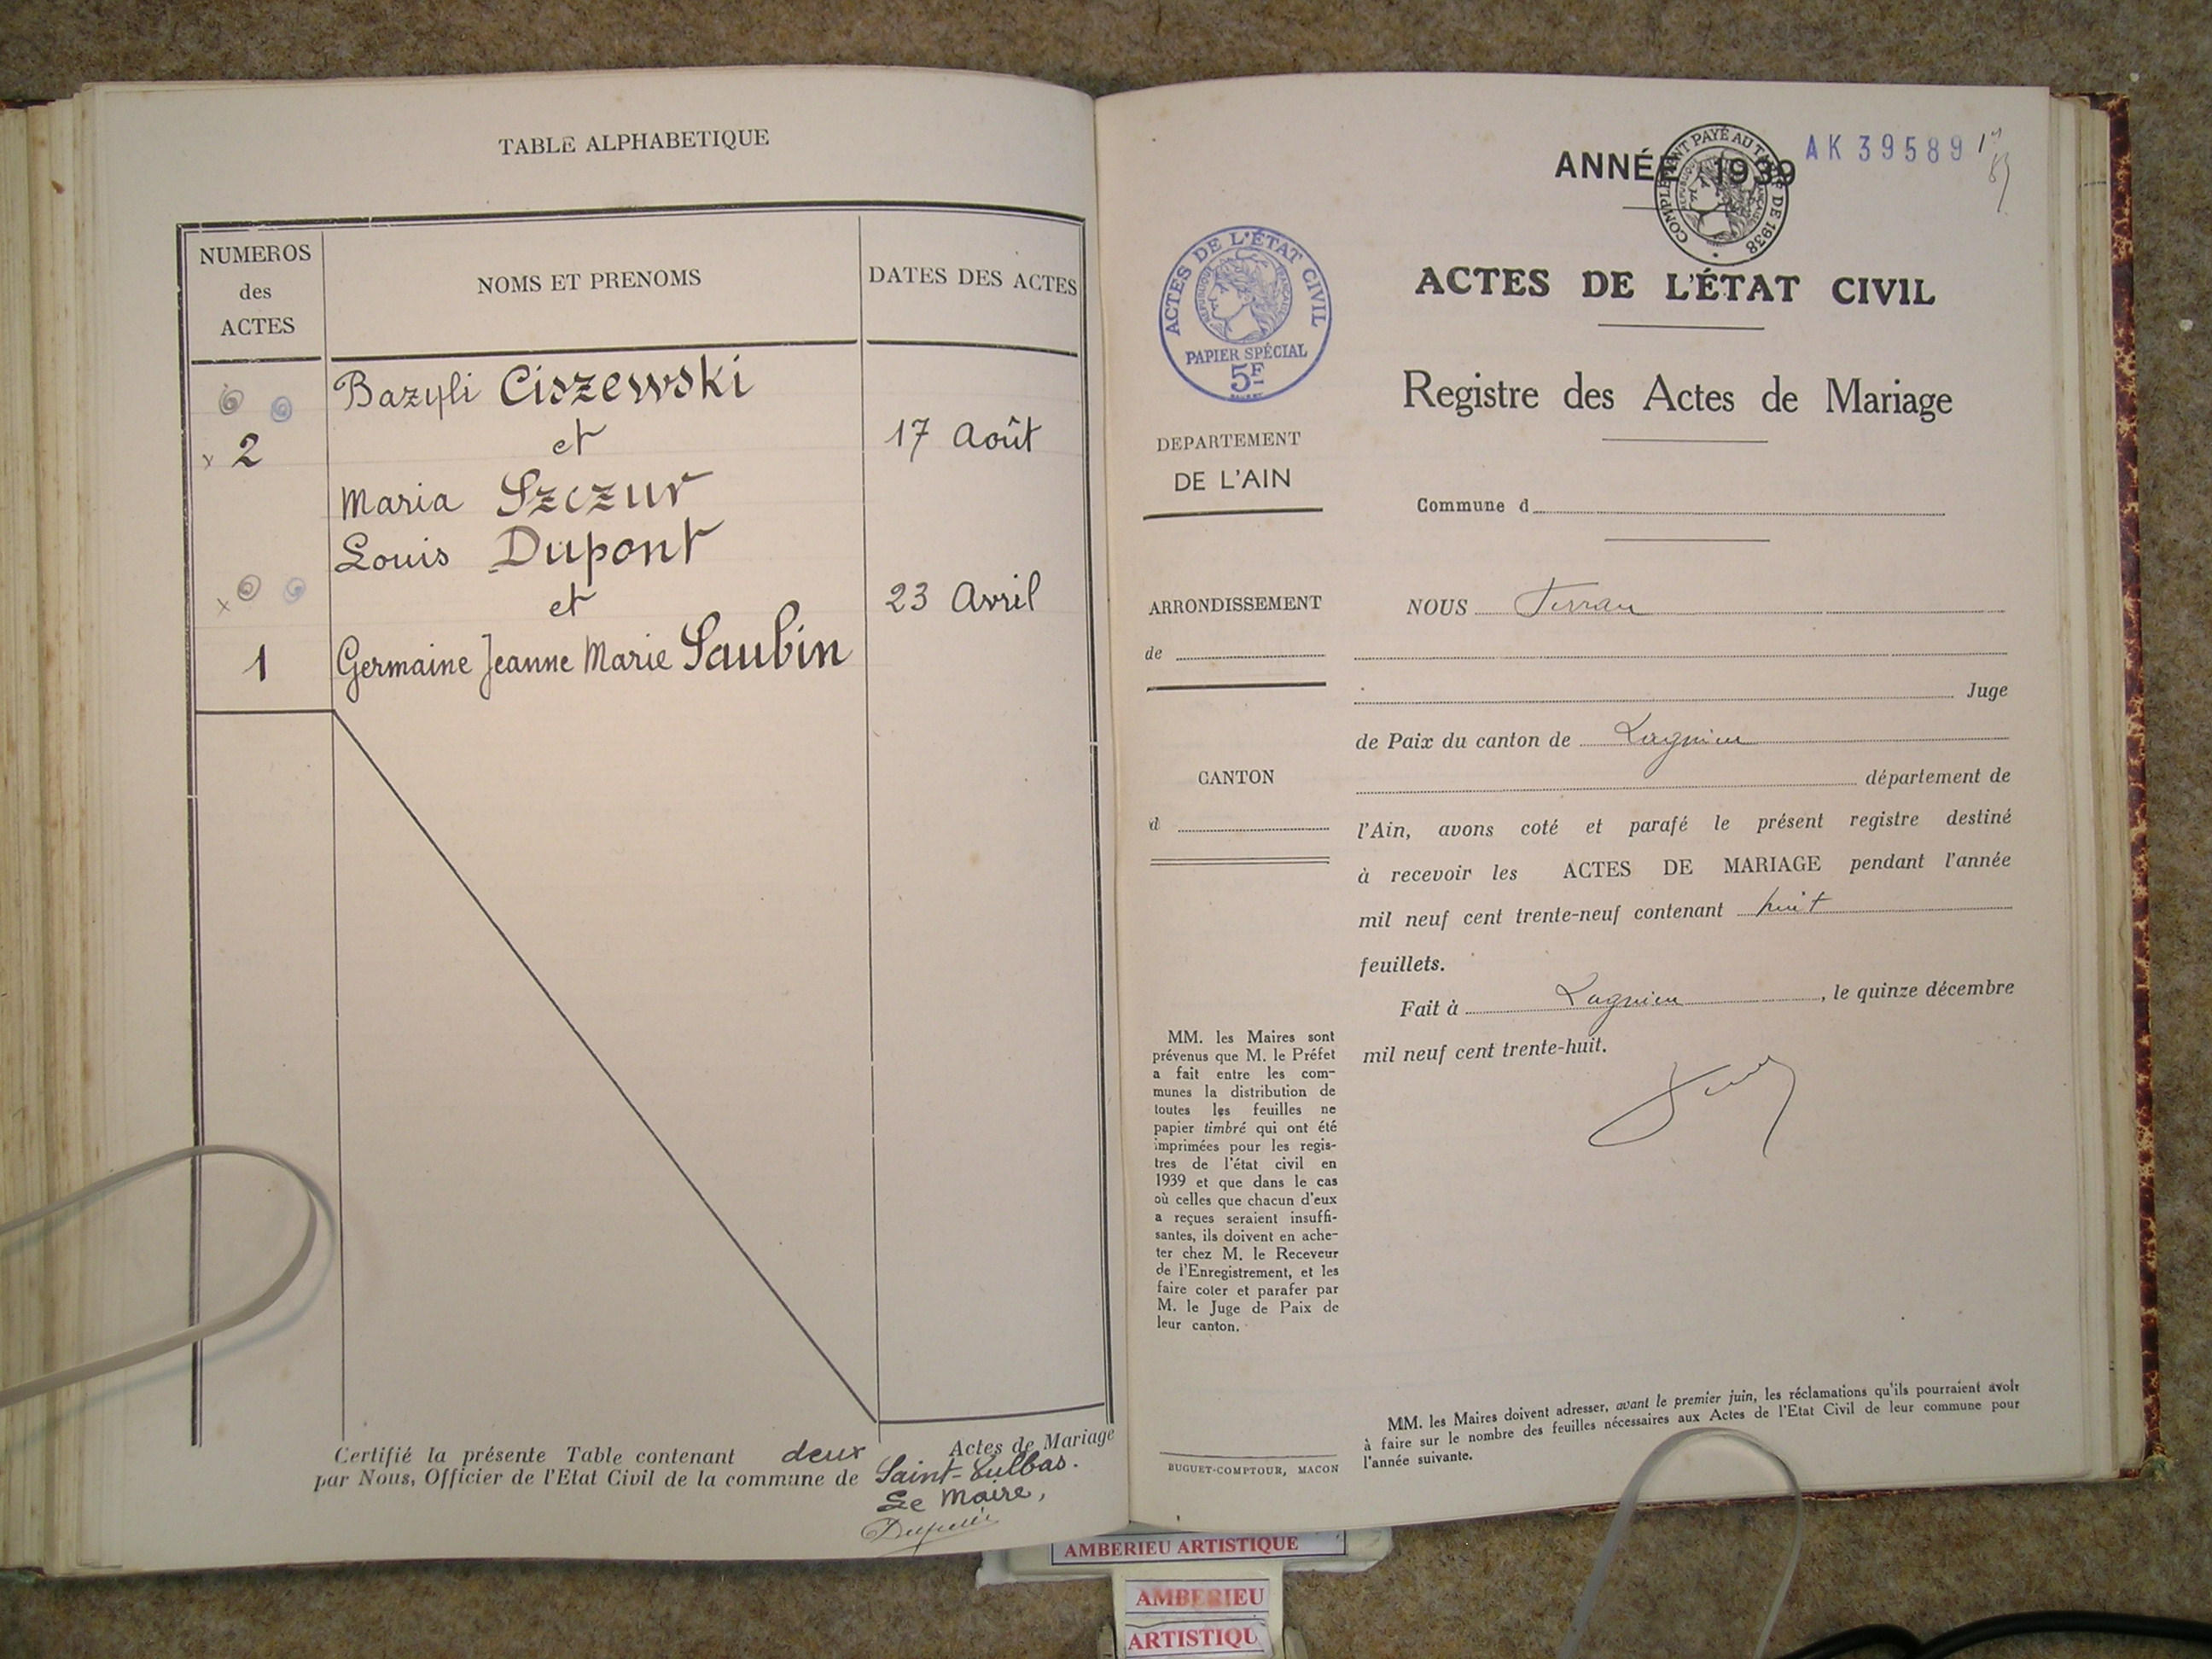 TABLE ALPHABETIQUE
NUMEROS
des
ACTES
NOMS ET PRENOMS
DATES DES ACTES
Bazyli Ciszewski
2
et
17 Août
Maria Szczur
Louis Dupont
et
23 Avril
1
Germaine Jeanne Marie Saubin
Certifié la présente Table contenant deux Actes de Mariage
par Nous, Officier de l'Etat Civil de la commune de Saint-Vulbas.
Le Maire,
ANNÉE 1939
AK 39589
COMPLEMENT PAYÉ AU TARIF DE 1938
ACTES DE L'ÉTAT CIVIL
REPUBLIQUE FRANÇAISE
PAPIER SPÉCIAL
5F
ACTES DE L'ÉTAT CIVIL
Registre des Actes de Mariage
DEPARTEMENT
DE L'AIN
Commune d
ARRONDISSEMENT
de
NOUS Ferran
Juge
de Paix du canton de Lagnieu
CANTON
d
département de
l'Ain, avons coté et parafé le présent registre destiné
à recevoir les ACTES DE MARIAGE pendant l'année
mil neuf cent trente-neuf contenant huit
feuillets.
Fait à Lagnieu, le quinze décembre
mil neuf cent trente-huit.
MM. les Maires sont
prévenus que M. le Préfet
a fait entre les com-
munes la distribution de
toutes les feuilles ne
papier timbré qui ont été
imprimées pour les regis-
tres de l'état civil en
1939 et que dans le cas
où celles que chacun d'eux
a reçues seraient insuffi-
santes, ils doivent en ache-
ter chez M. le Receveur
de l'Enregistrement, et les
faire coter et parafer par
M. le Juge de Paix de
leur canton.
MM. les Maires doivent adresser, avant le premier juin, les réclamations qu'ils pourraient avoir
à faire sur le nombre des feuilles nécessaires aux Actes de l'Etat Civil de leur commune pour
l'année suivante.
BUGUET-COMPTOUR, MACON
AMBERIEU ARTISTIQUE
AMBERIEU
ARTISTIQU